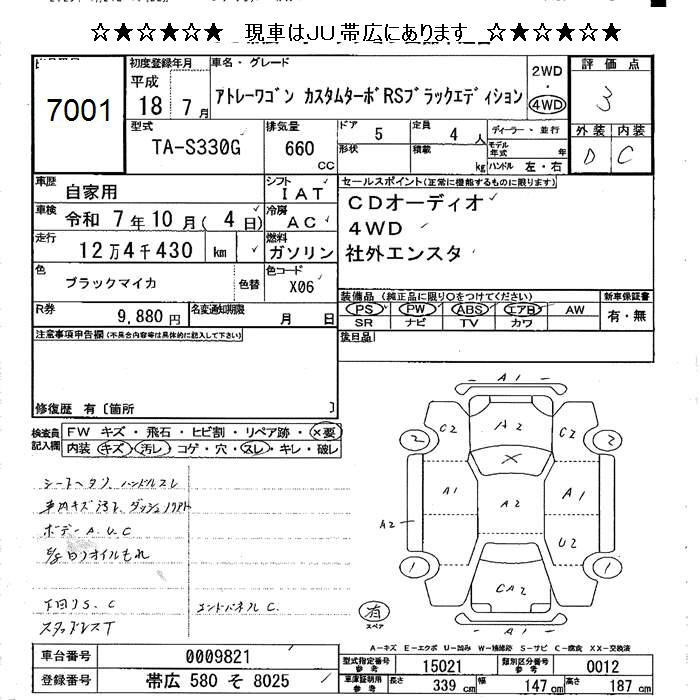 ☆★☆★☆★　現車はJU帯広にあります　☆★☆★☆★
7001
初度登録年月
平成
18 7月
車名・グレード
アトレーワゴン カスタムターボRSブラックエディション
2WD
・
4WD
評価点
3
型式
TA-S330G
排気量
660
CC
ドア 5
定員 4 人
ディーラー・並行
形状
積載
kg
モデル年式 年
ハンドル 左・右
外装 内装
D C
車歴 自家用
シフト IAT
セールスポイント(正常に機能するものに限ります)
車検 令和 7年10月(4日)
冷房 AC
CDオーディオ
4WD
社外エンスタ
走行 12万4千430 km
燃料 ガソリン
色 ブラックマイカ
色替
色コード X06
装備品(純正品に限り○をつけてください)
新車保証書
PS PW ABS エアB AW
有・無
SR ナビ TV カワ
R券 9,880円
名変通知期限 月 日
注意事項申告欄(不具合内容等は具体的に記入して下さい)
後日品
修復歴 有〔箇所 〕
検査員記入欄
FW キズ・飛石・ヒビ割・リペア跡・×要
内装 キズ・汚レ・コゲ・穴・スレ・キレ・破レ
シートヘタリ、ハンドルスレ
車内キズ汚レ、ダッシュノリアト
ボデーA.U.C
下回りS.C
エンドパネルC.
スタッドレスT
A1
C2 A2 C2
2 × 2
A1 A2 A1
A2
U2
1 CA2 1
A1
有
スペア
A-キズ E-エクボ U-凹み W-補修跡 S-サビ C-腐食 XX-交換済
車台番号 0009821
型式指定番号 参考 15021
類別区分番号 参考 0012
登録番号 帯広 580 そ 8025
車庫証明用 参考 長さ 339 cm 幅 147 cm 高さ 187 cm